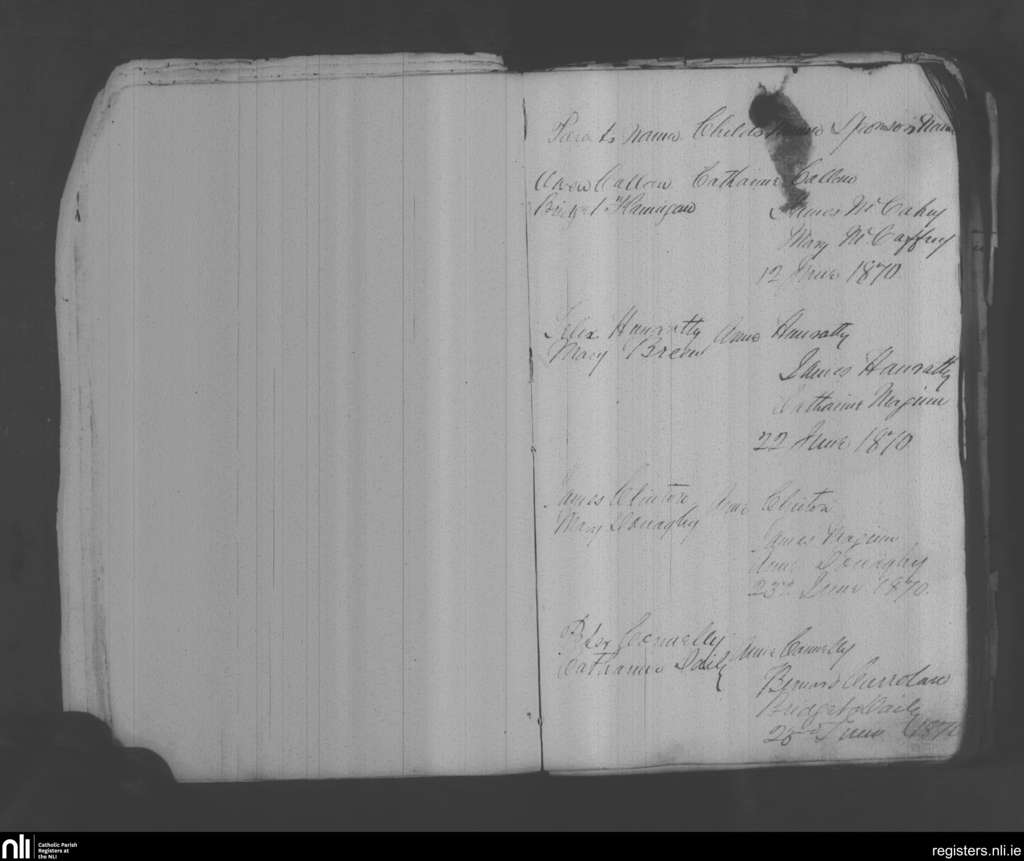 Parents names Childs name Sponsors Name
Owen Callon Catharine Callon
Bridget Flanigan
James McCahy
Mary McCaffrey
12 June 1870
Felix Hanratty Anne Hanratty
Mary Breen
James Hanratty
Catharine
22 June 1870
James Clinton Anne Clinton
Mary Donaghy
James
Anne Donaghy
23rd June 1870
Peter Connelly Anne Connelly
Catharine Daily
Bernard
Bridget Daily
25th June 1870
nli
Catholic Parish
Registers at
the NLI
registers.nli.ie